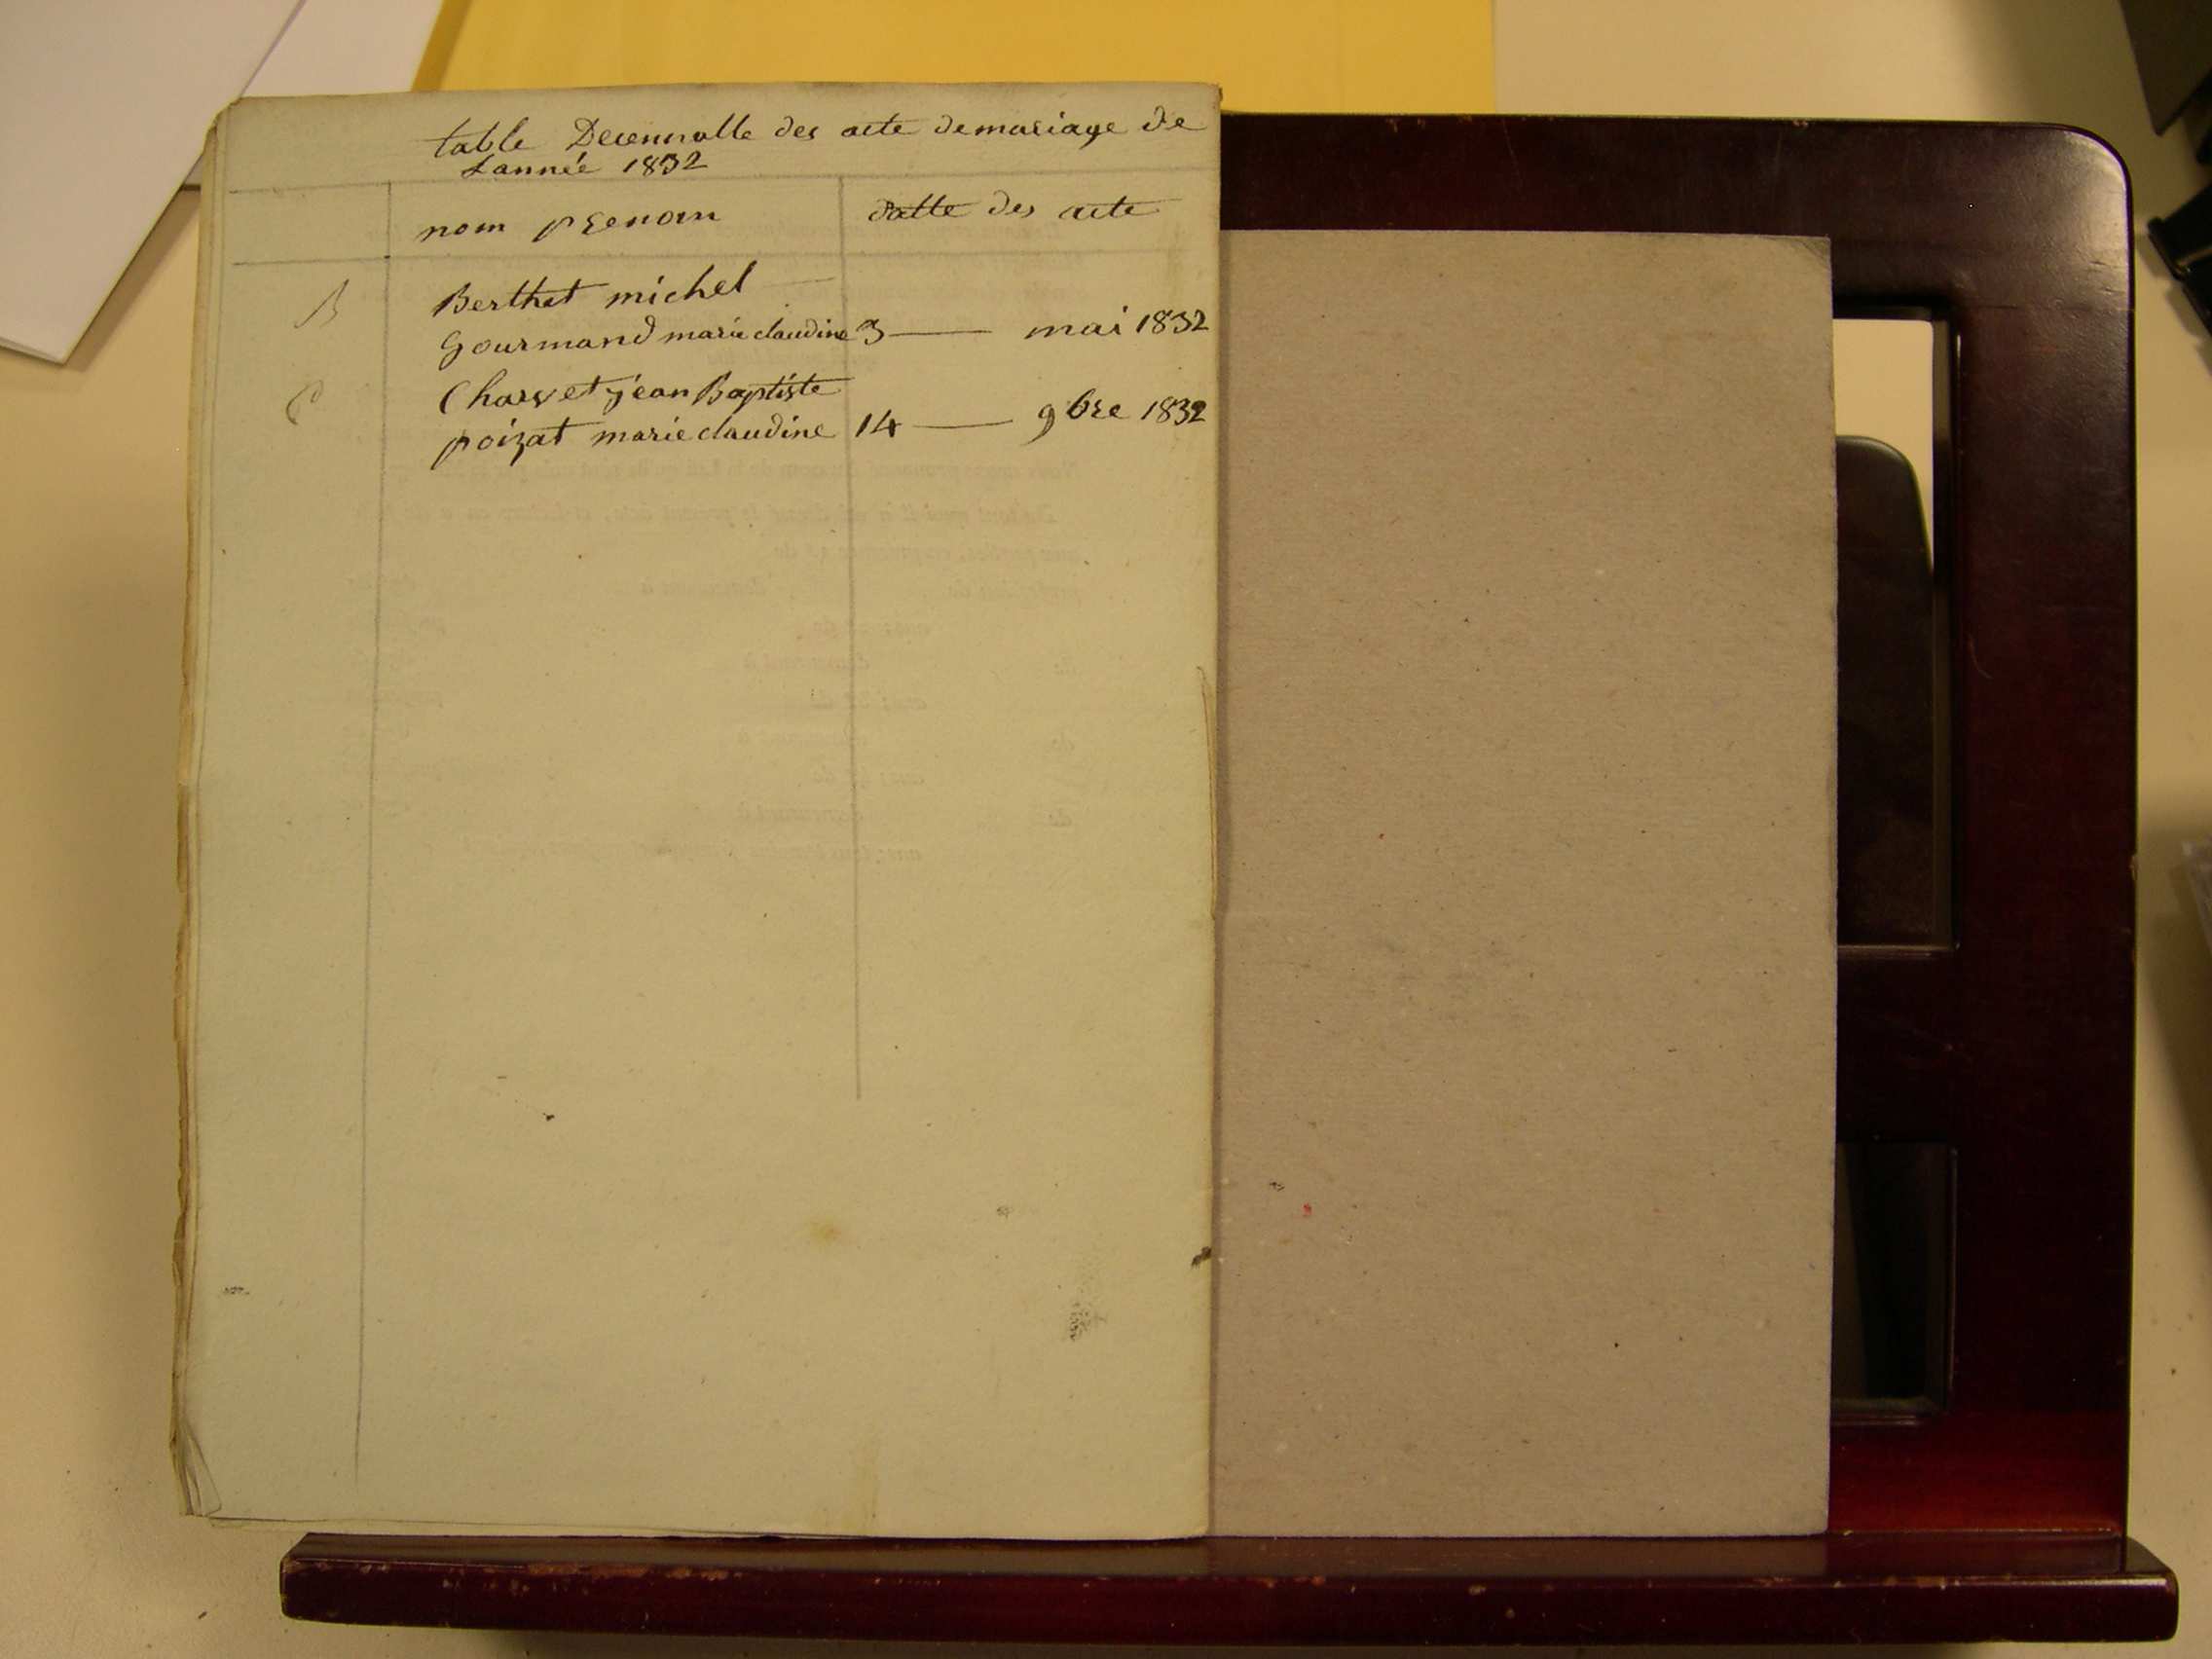 table Decennalle des acte demariage de
Lannée 1832
nom prenom datte des acte
B Berthet michel
gourmand marie claudine 3 — mai 1832
C Charvet jean Baptiste
poizat marie claudine 14 — 9bre 1832